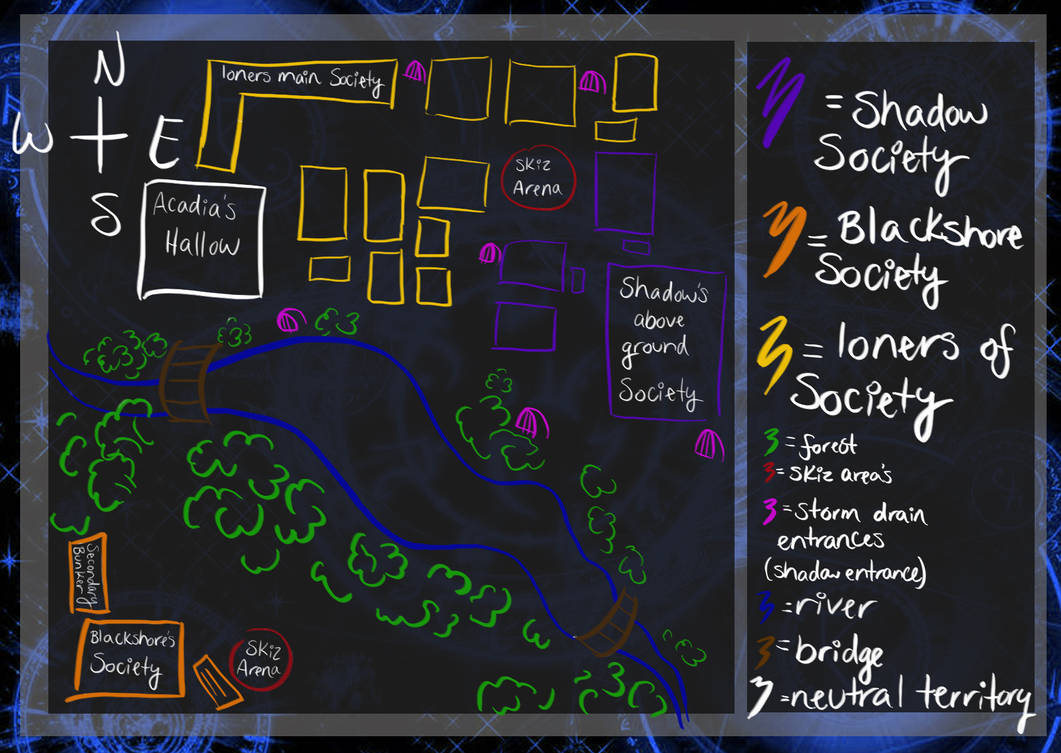 N
W E
S
loners main Society
Skiz
Arena
Acadia's
Hallow
Shadow's
above
ground
Society
Secondary
Bunker
Blackshore's
Society
Skiz
Arena
= Shadow
Society
= Blackshore
Society
= loners of
Society
= forest
= Skiz area's
= Storm drain
entrances
(shadow entrance)
= river
= bridge
= neutral territory